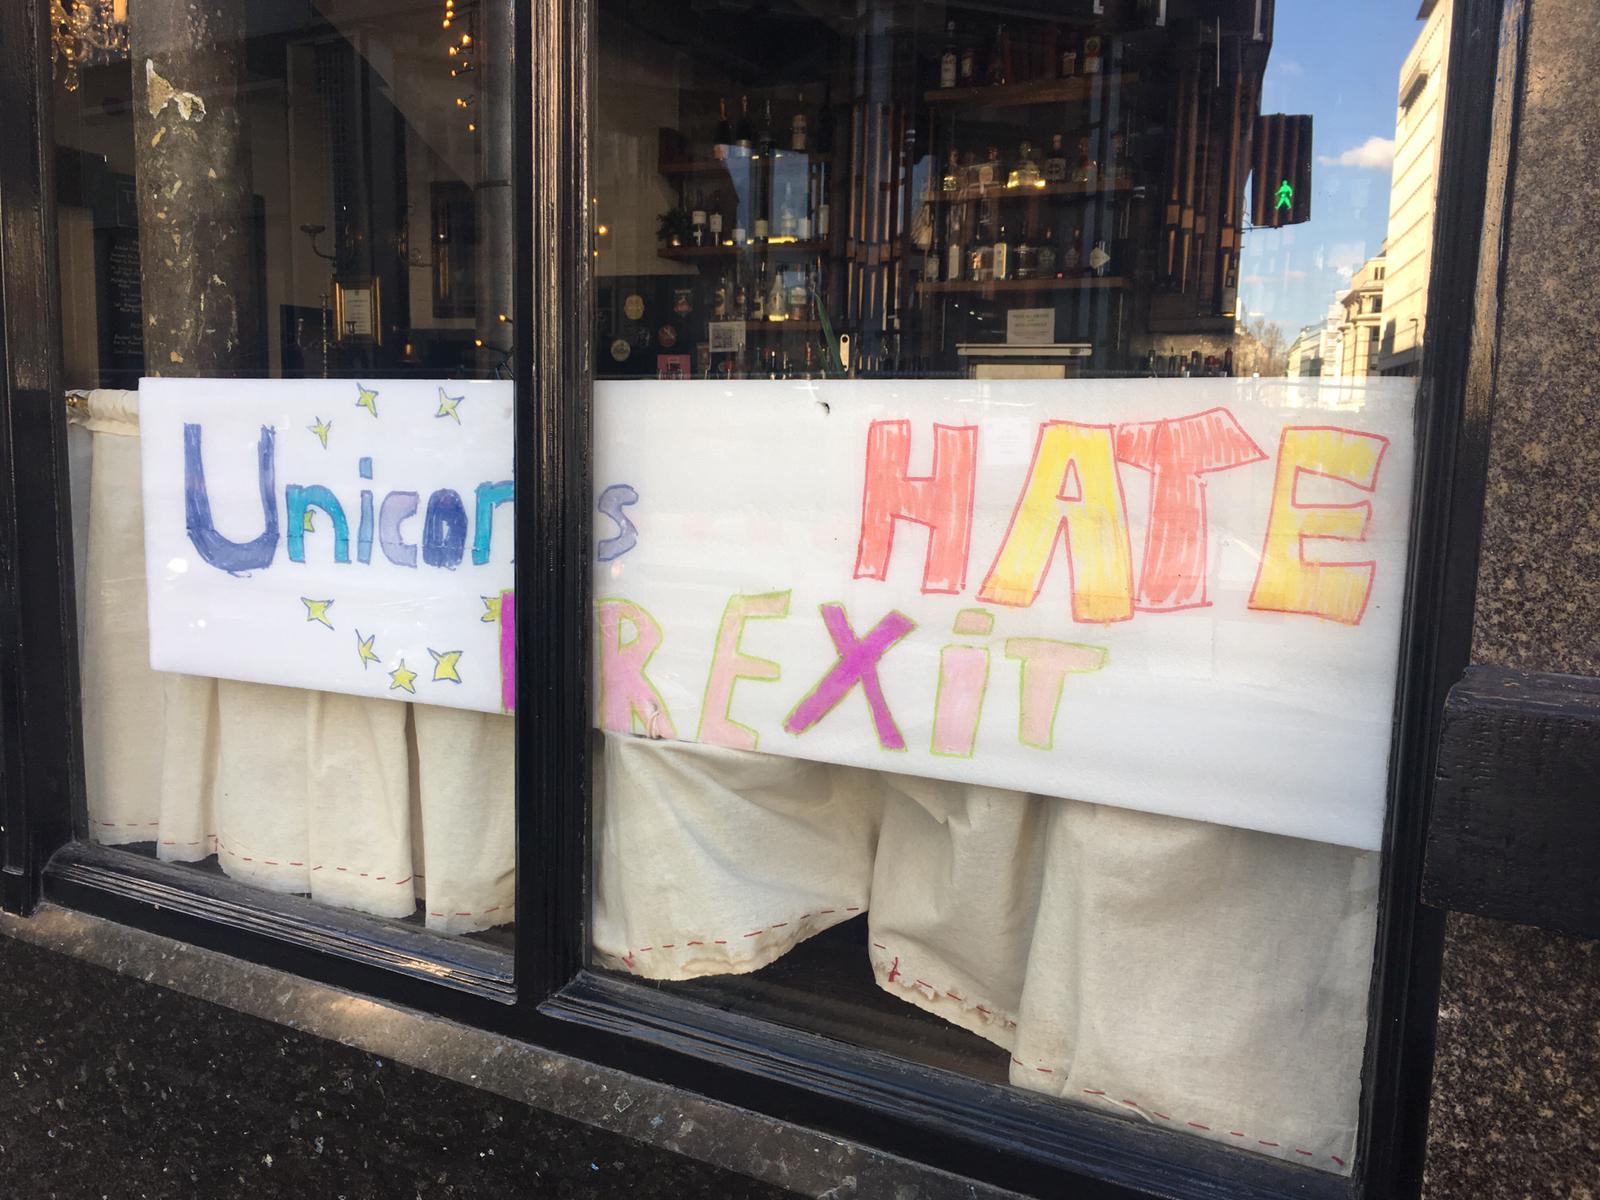 Unicorns HATE
BREXiT